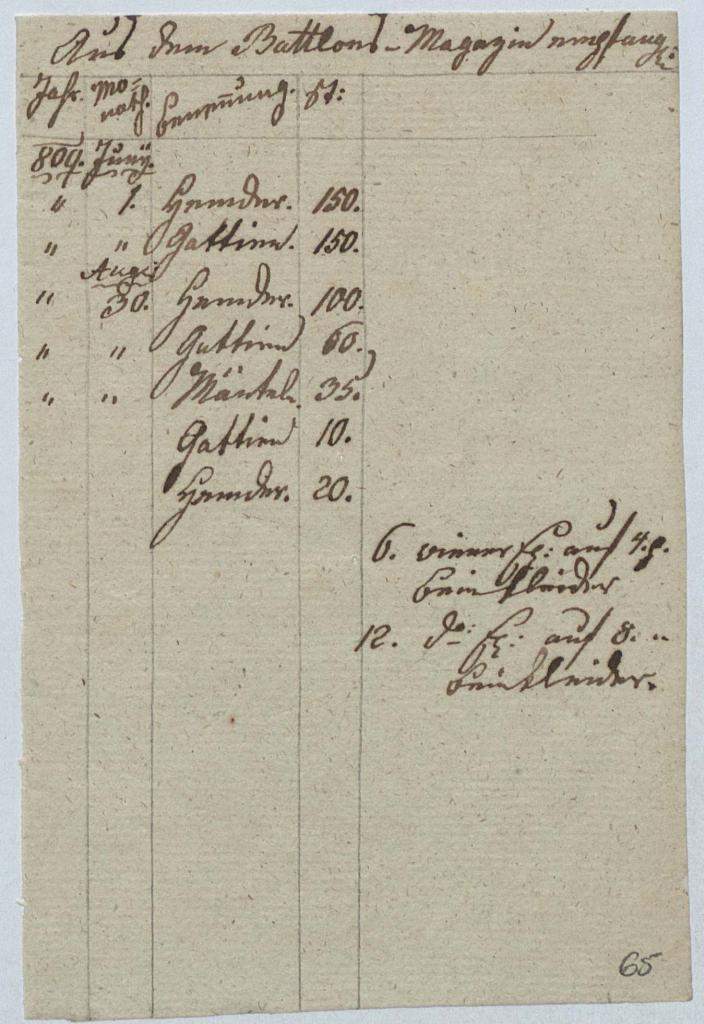 Aus dem Battlons-Magazin empfang:
Jahr. Mo=nath. Benennung. St:
809. Juny.
" 1. Hemder. 150.
" " Gattien. 150.
Aug:
" 30. Hemder. 100.
" " Gattien 60.
" " Mäntel. 35.
Gattien 10.
Hemder. 20.
6. wiener auf 4. p.
beinkleider
12. do: auf 8. "
beinkleider.
65